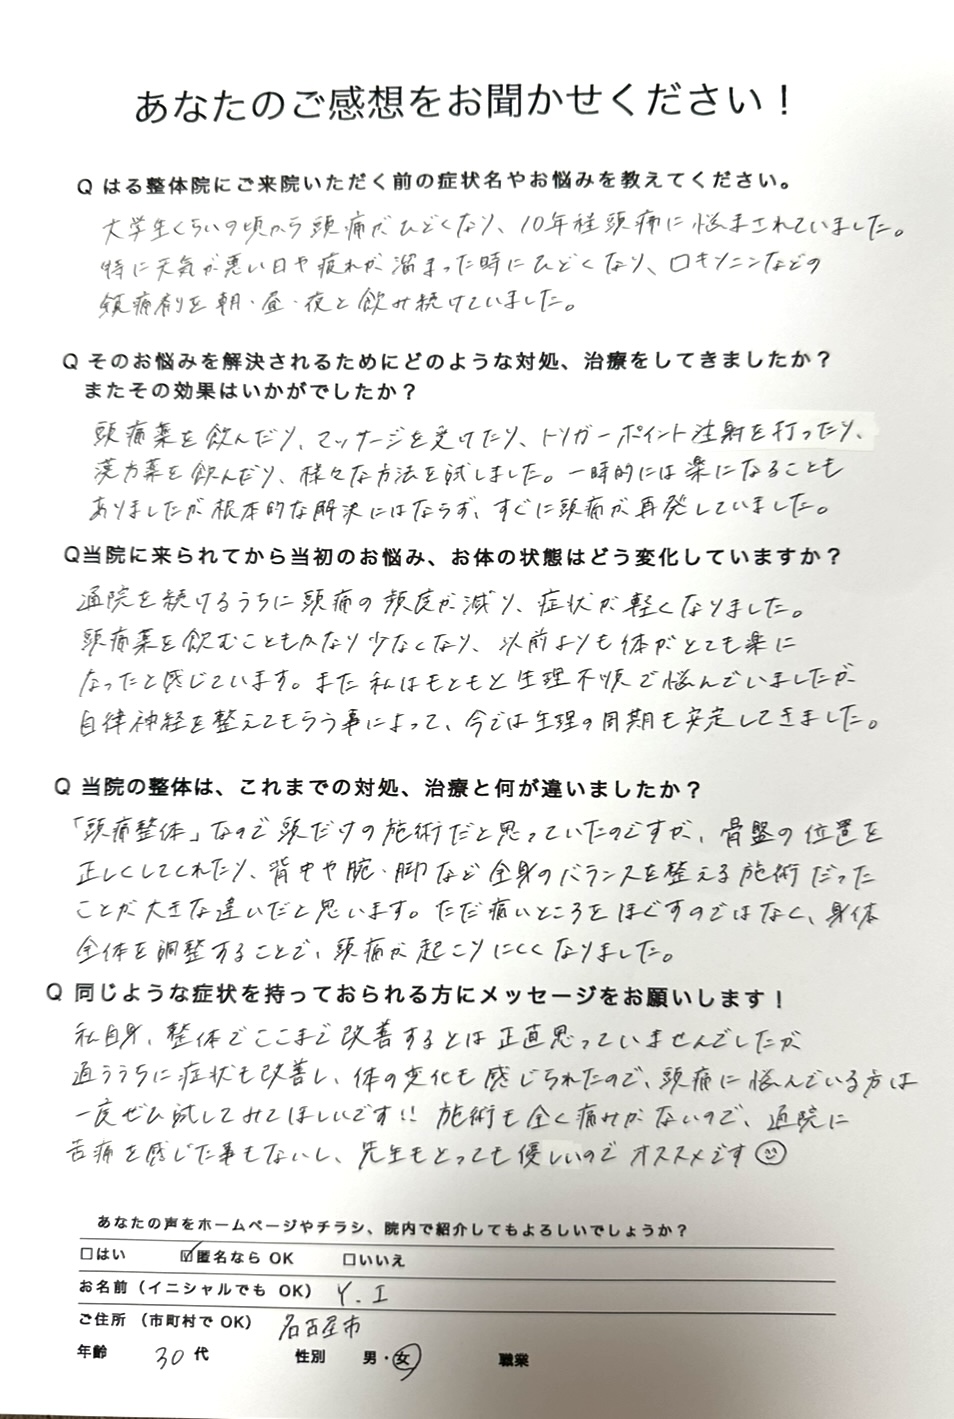 あなたのご感想をお聞かせください！
Q はる整体院にご来院いただく前の症状名やお悩みを教えてください。
大学生くらいの頃から頭痛がひどくなり、10年程頭痛に悩まされていました。
特に天気が悪い日や疲れが溜まった時にひどくなり、ロキソニンなどの
鎮痛剤を朝・昼・夜と飲み続けていました。
Q そのお悩みを解決されるためにどのような対処、治療をしてきましたか？
またその効果はいかがでしたか？
頭痛薬を飲んだり、マッサージを受けたり、トリガーポイント注射を打ったり、
漢方薬を飲んだり、様々な方法を試しました。一時的には楽になることも
ありましたが根本的な解決にはならず、すぐに頭痛が再発していました。
Q当院に来られてから当初のお悩み、お体の状態はどう変化していますか？
通院を続けるうちに頭痛の頻度が減り、症状が軽くなりました。
頭痛薬を飲むこともかなり少なくなり、以前よりも体がとても楽に
なったと感じています。また私はもともと生理不順で悩んでいましたが
自律神経を整えてもらう事によって、今では生理の周期も安定してきました。
Q 当院の整体は、これまでの対処、治療と何が違いましたか？
「頭痛整体」なので頭だけの施術だと思っていたのですが、骨盤の位置を
正しくしてくれたり、背中や腕・脚など全身のバランスを整える施術だった
ことが大きな違いだと思います。ただ痛いところをほぐすのではなく、身体
全体を調整することで、頭痛が起こりにくくなりました。
Q 同じような症状を持っておられる方にメッセージをお願いします！
私自身、整体でここまで改善するとは正直思っていませんでしたが
通ううちに症状も改善し、体の変化も感じられたので、頭痛に悩んでいる方は
一度ぜひ試してみてほしいです!! 施術も全く痛みがないので、通院に
苦痛を感じた事もないし、先生もとっても優しいのでオススメです☺
あなたの声をホームページやチラシ、院内で紹介してもよろしいでしょうか？
☐はい ☑匿名なら OK ☐いいえ
お名前（イニシャルでも OK） Y.I
ご住所（市町村で OK） 名古屋市
年齢 30 代 性別 男・女 職業